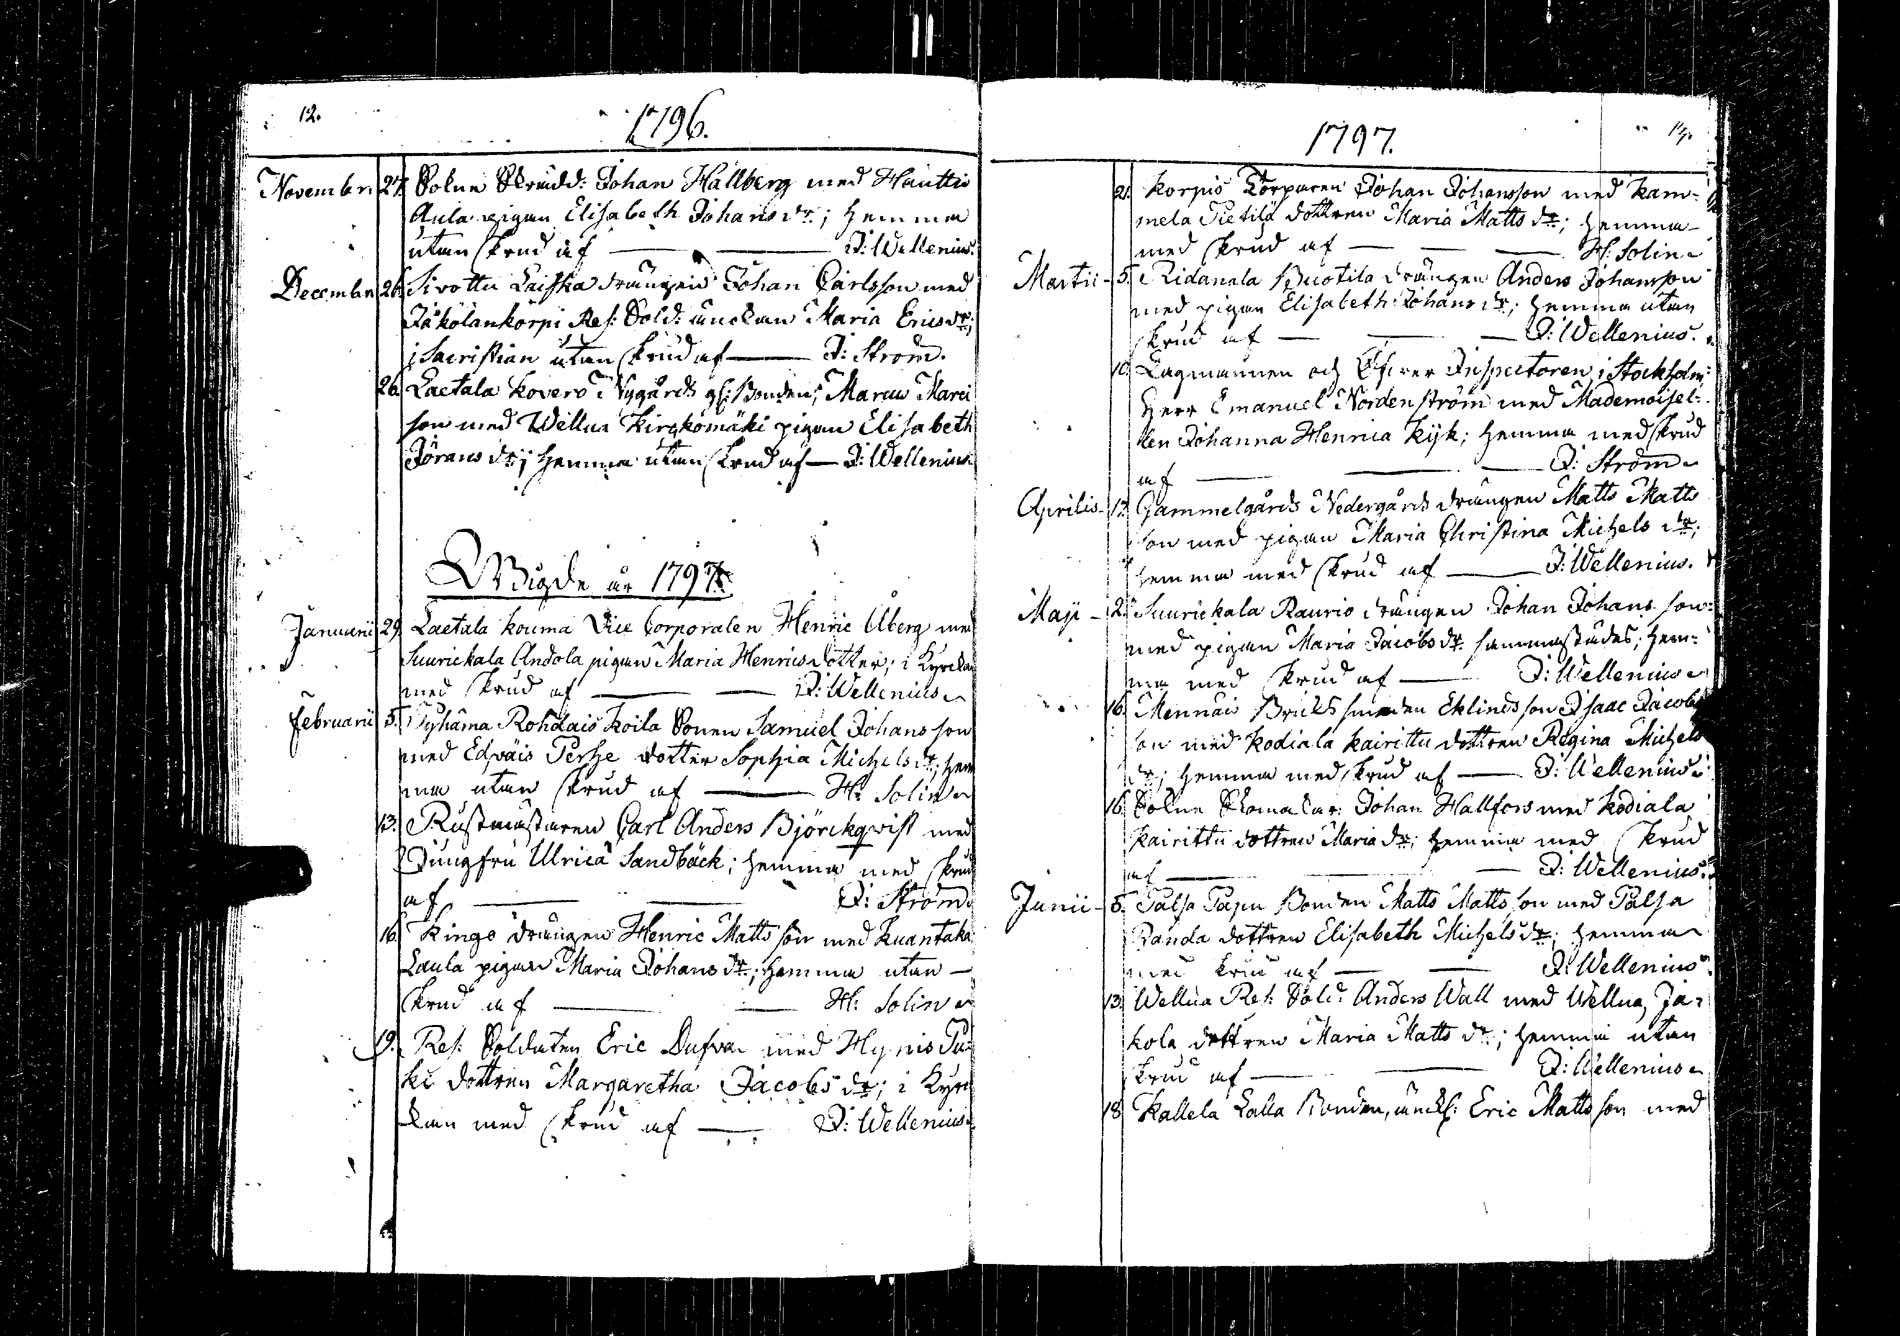 12.
1796.
Novembr: 27. Sokne Skrädd: Johan Hallberg med Hauttis
Aula pigan Elisabeth Johans dr; hemma
utan skrud af — — J: Wellenius.
Decembr: 26. Sirottu Laiska drängen Johan Carlsson med
Jakolankorpi Res: Sold: änckan Maria Erics dr;
i Sacristian utan skrud af — J: Ström.
26. Laetala Kovero Nygårds gl: Bonden, Marcus Marci
son med Wellua Kirckomäki pigan Elisabeth
Jörans dr; hemma utan skrud af — J: Wellenius.
Wigde år 1797.
Januarii 29. Laetala Kouma Vice Corporalen Henric Åberg med
Suurickala Andola pigan Maria Henricsdotter; i Kyrckan
med skrud af — — J: Wellenius
Februarii 5. Tyhäma Rohdais Koila Sonen Samuel Johans son
med Edväis Perhe dotter Sophia Michels dr; hem
ma utan skrud af — H: Solin
13. Rustmästaren Carl Anders Björckqwist med
Jungfru Ulrica Sandbäck; hemma med skrud
af — — J: Ström.
16. Kingo drängen Henric Matts son med Kuantaka
Laula pigan Maria Johans dr; hemma utan —
skrud af — — H: Solin
19. Res: Soldaten Eric Dufva med Hypnis Tu
ki dottren Margaretha Jacobs dr; i Kyrc
kan med skrud af — J: Wellenius.
13.
1797.
21. Korpis Torparen Johan Johansson med Kam-
mela Pietilä dottren Maria Matts dr; hemma
med skrud af — — — H: Solin
Martii - 5. Ridanala Buotila drängen Anders Johansson
med pigan Elisabeth Johans dr; hemma utan
skrud af — — — J: Wellenius.
10. Lagmannen och Öfver Inspectoren i Stockholm
Herr Emanuel Nordenström med Mademoisel-
len Johanna Henrica Kijk; hemma med skrud
af — — — J: Ström
Aprilis - 17. Gammelgårds Nedergårds drängen Matts Matts
son med pigan Maria Christina Michels dr;
hemma med skrud af — J: Wellenius.
Maji - 2. Suurickala Raurio drängen Johan Johans son
med pigan Maria Jacobs dr sammastädes; hem-
ma med skrud af — J: Wellenius
16. Mennäis Bruks smeden Eklinds son Isaac Jacobs
son med Kodiala Kairittu dottren Regina Michels
dr; hemma med skrud af — J: Wellenius
16. Sokne Skomakar: Johan Hallfors med Kodiala
Kairittu dottren Maria dr; hemma med skrud
af — — — J: Wellenius.
Junii - 5. Palsa Papu Bonden Matts Matts son med Palsa
Randa dottren Elisabeth Michels dr; hemma
med skrud af — — J: Wellenius
13. Wellua Res: Sold: Anders Wall med Wellua, Ja-
kola dottren Maria Matts dr; hemma utan
skrud af — — J: Wellenius
18. Kallela Lalla Bonden, änckl: Eric Matts son med